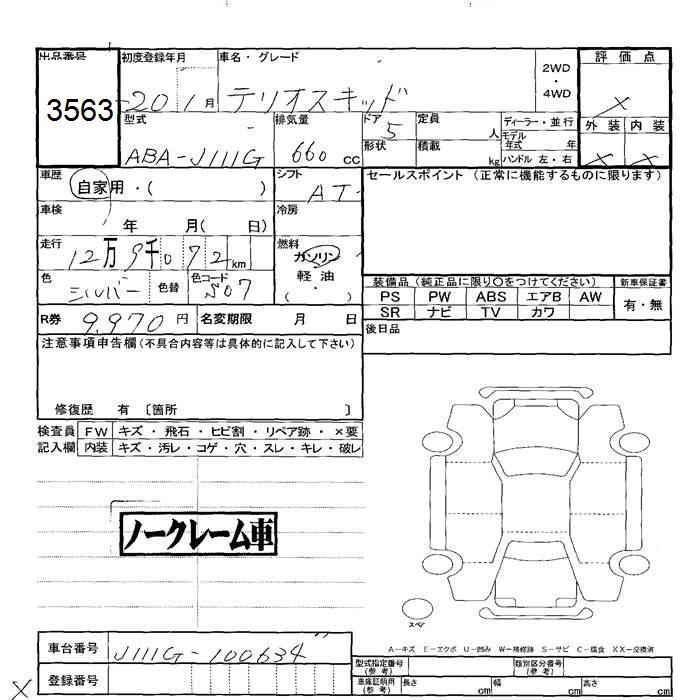 出品番号 初度登録年月 車名・グレード 2WD・4WD 評価点
3563 20 1月 テリオスキッド ×
型式 排気量 ドア 定員 ディーラー・並行 外装 内装
ABA-J111G 660cc 5 人 モデル年式 年 × ×
形状 積載 kg ハンドル 左・右
車歴 自家用・( ) シフト AT セールスポイント (正常に機能するものに限ります)
車検 年 月( 日) 冷房
走行 12万9千092km 燃料 ガソリン 軽油 ・( )
色 シルバー 色替 色コード S07
装備品 (純正品に限り○をつけてください) 新車保証書
PS PW ABS エアB AW 有・無
SR ナビ TV カワ
R券 9,970円 名変期限 月 日 後日品
注意事項申告欄(不具合内容等は具体的に記入して下さい)
修復歴 有 〔箇所 〕
検査員 FW キズ・飛石・ヒビ割・リペア跡・×要
記入欄 内装 キズ・汚レ・コゲ・穴・スレ・キレ・破レ
ノークレーム車
スペア
A-キズ E-エクボ U-凹み W-補修跡 S-サビ C-腐食 XX-交換済
車台番号 J111G-100634
型式指定番号(参考) 類別区分番号(参考)
登録番号 車庫証明用(参考) 長さ cm 幅 cm 高さ cm
×